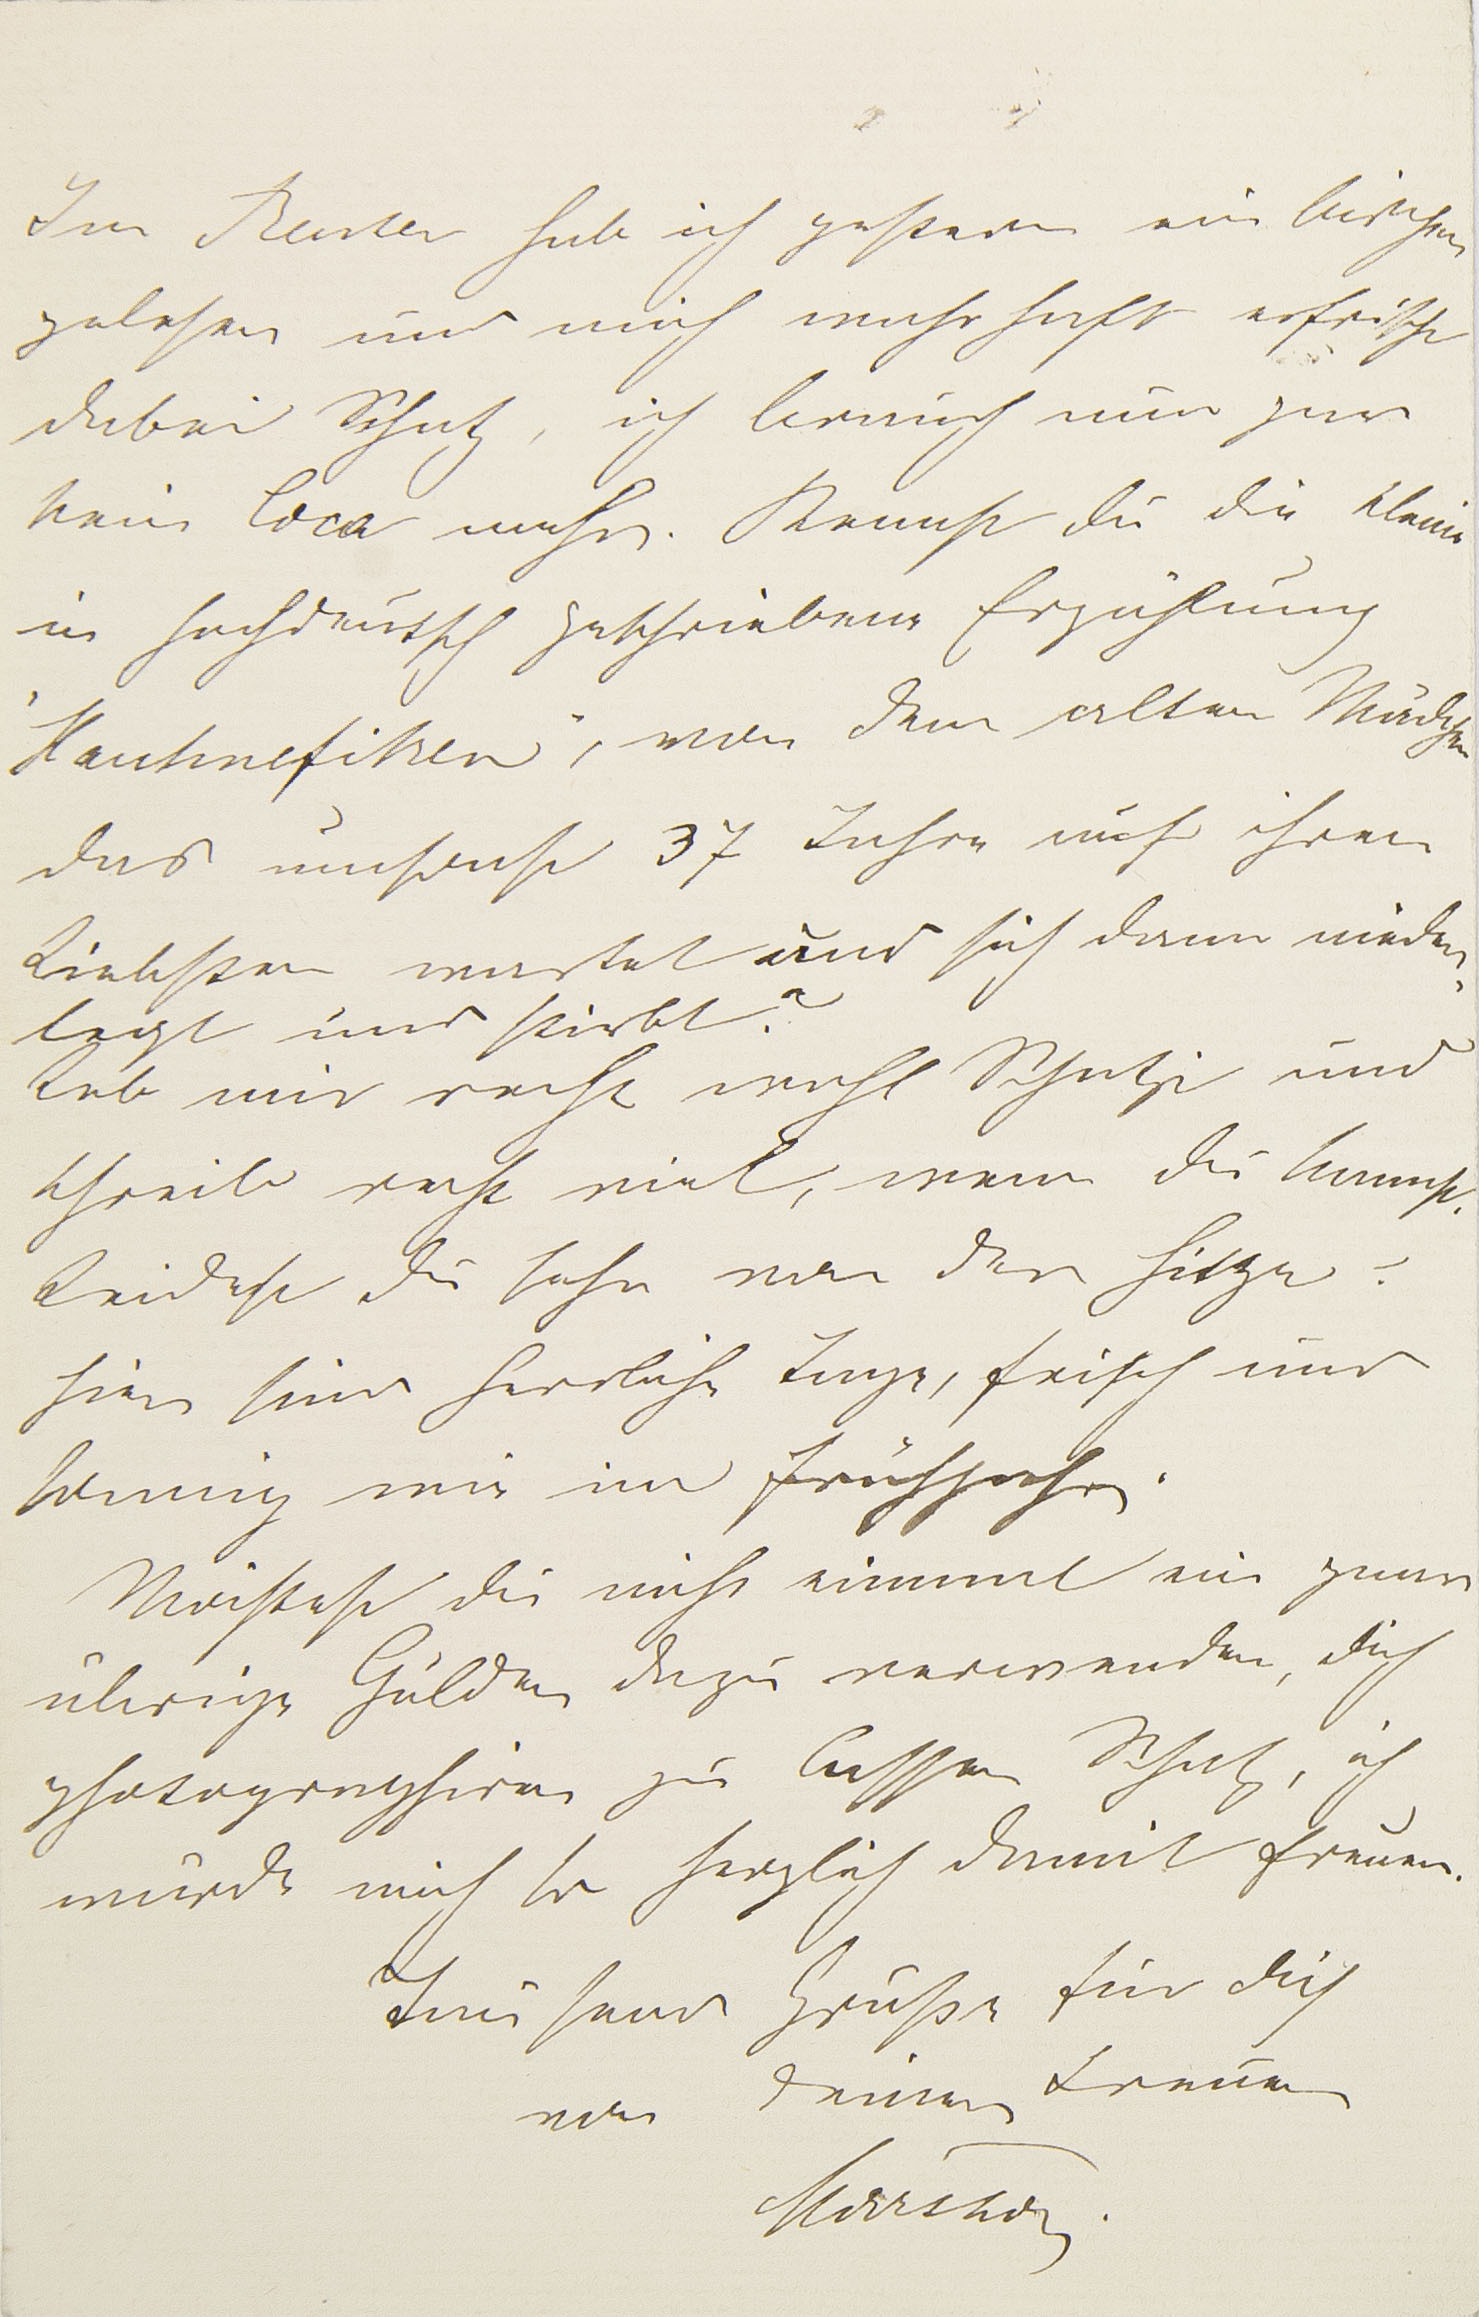 Im Reuter hab ich gestern ein bischen
gelesen und mich wahrhaft erfrischt
dabei Schatz, ich brauch nun gar
kein Coca mehr. Kennst Du die kleine
in hochdeutsch geschriebene Erzählung
"Haunefiken", von dem alten Mädchen
das umsonst 37 Jahre auf ihren
Liebsten wartet und sich dann nieder-
legt und stirbt?
Leb mir recht wohl Schatzi und
schreib recht viel, wenn Du kannst.
Leidest Du sehr von der Hitze?
hier sind herrliche Tage, frisch und
sonnig wie im Frühjahr.
Möchtest Du nicht einmal ein paar
übrige Gulden dazu verwenden, Dich
photographiren zu lassen Schatz, ich
würde mich so herzlich damit freuen.
Tausend Grüße für Dich
von Deiner treuen
Martha.